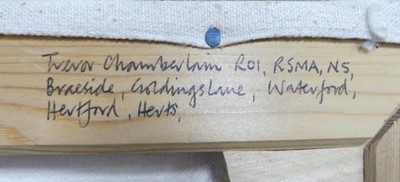 Trevor Chamberlain ROI, RSMA, NS,
Braeside, Goldings Lane, Waterford,
Hertford, Herts,